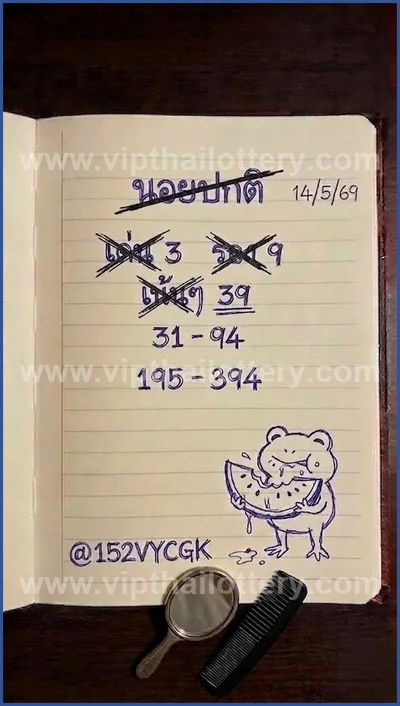 www.vipthailottery.com
นอยปกติ 14/5/69
เด่น 3 รอง 9
เน้นๆ 39
31 - 94
www.vipthailottery.com
195 - 394
@152VYCGK
www.vipthailottery.com